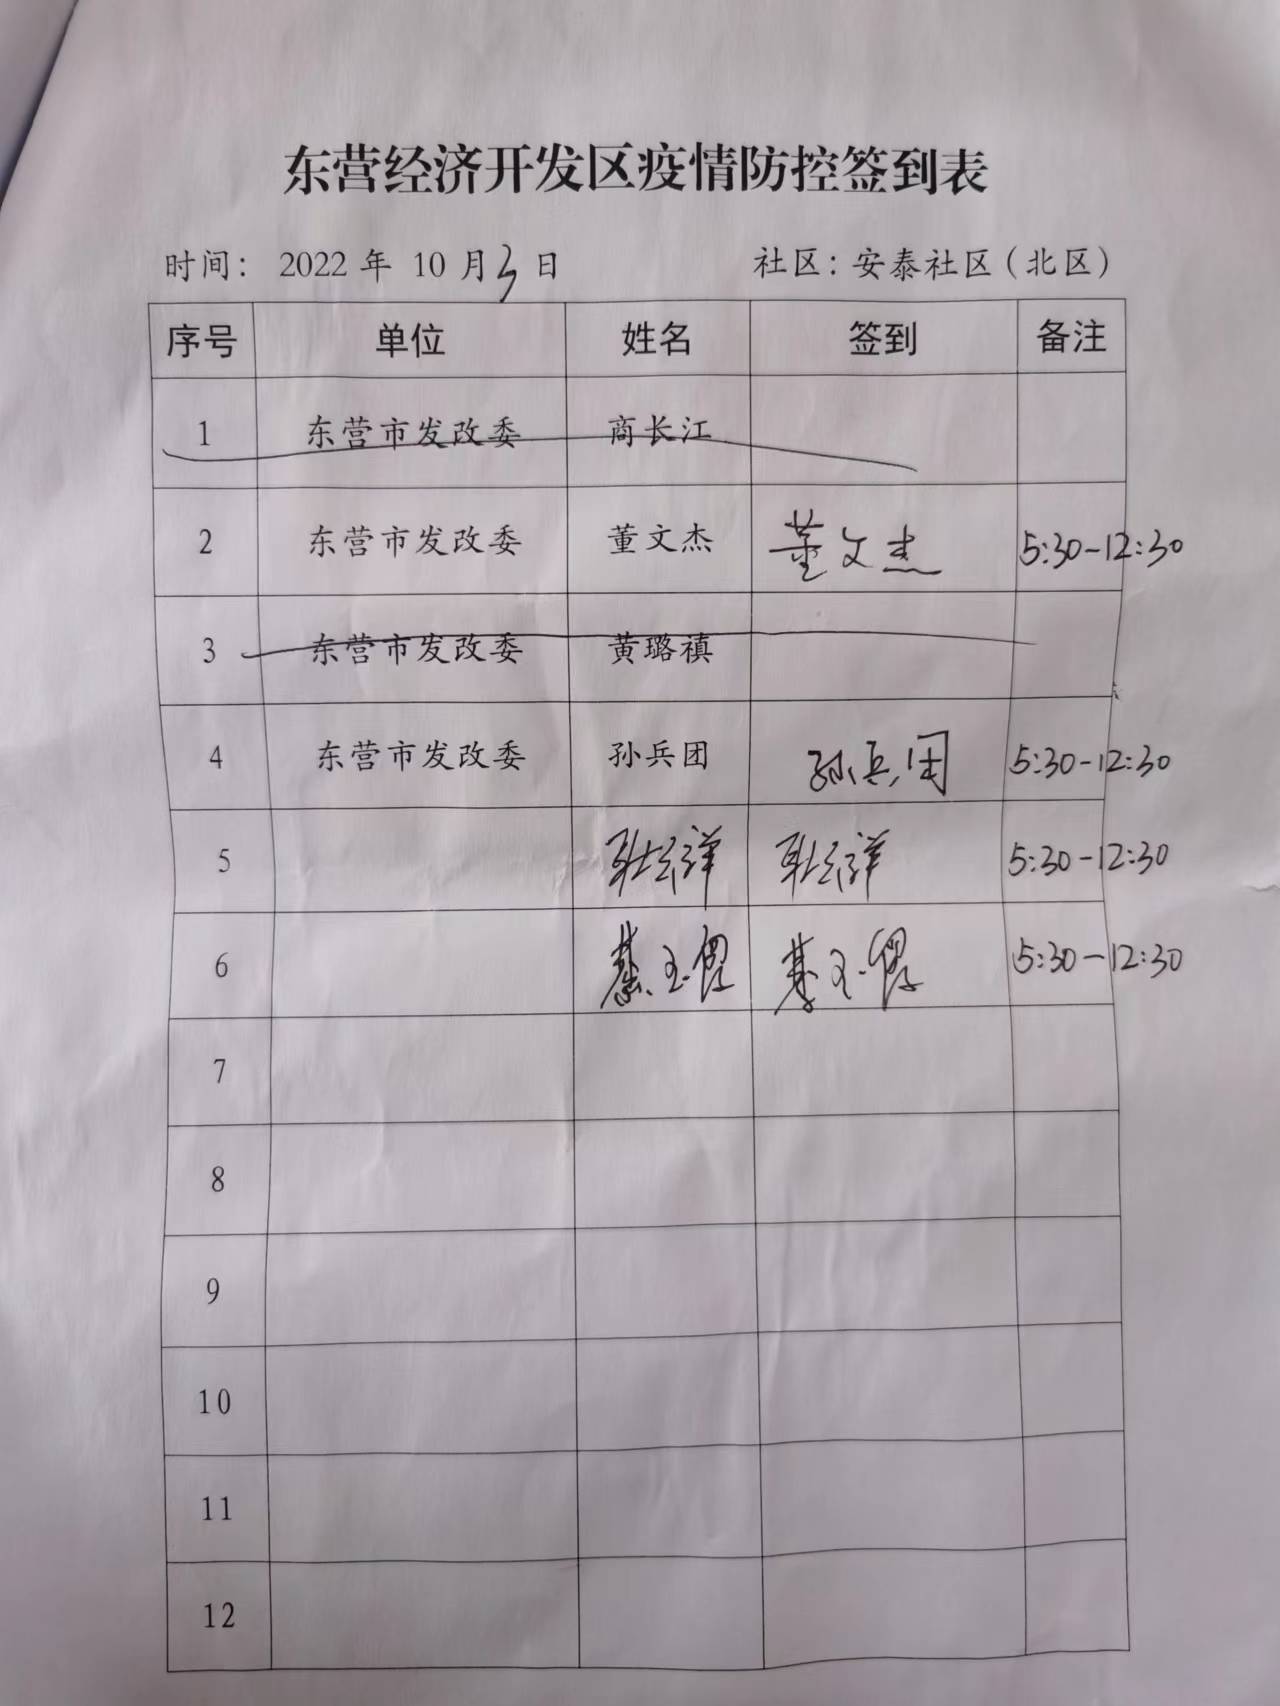 东营经济开发区疫情防控签到表
时间： 2022 年 10 月 3 日 社区：安泰社区（北区）
序号 单位 姓名 签到 备注
1 东营市发改委 商长江
2 东营市发改委 董文杰 董文杰 5:30-12:30
3 东营市发改委 黄璐禛
4 东营市发改委 孙兵团 孙兵团 5:30-12:30
5 5:30-12:30
6 5:30-12:30
7
8
9
10
11
12